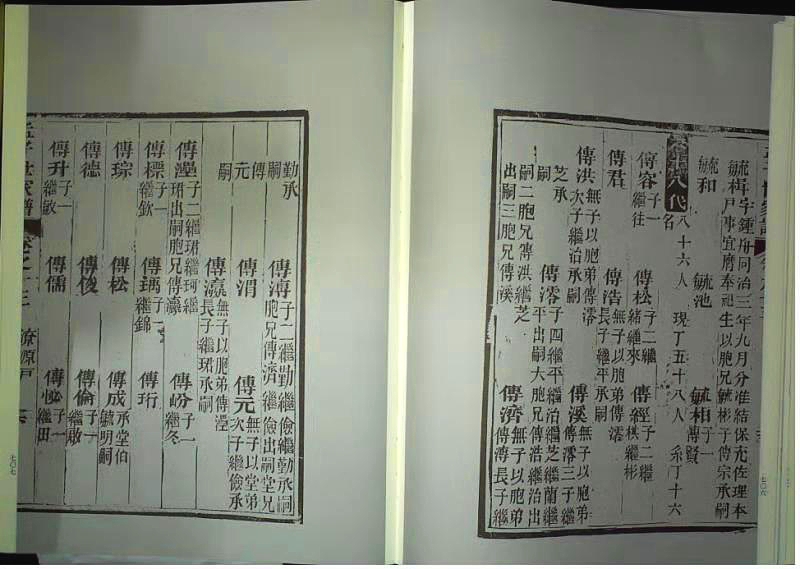 毓楫字鍾舟同治三年九月分准結保充佐理本
戶事宜府奉祀生以胞兄毓彬子傳宗承嗣
毓和 毓池 毓相子一傳賢
八代 八十六人 現丁五十八人 系丁十六名
傳容子一繼往 傳松子二繼緒繼來 傳經子二繼棋繼彬
傳君 傳浩無子以胞弟傳澪長子繼平承嗣
傳洪無子以胞弟傳澪次子繼治承嗣 傳溪無子以胞弟傳澪三子繼
芝承嗣 傳澪子四繼平繼治繼芝繼蘭繼平出嗣大胞兄傳浩繼治出
嗣二胞兄傳洪繼芝出嗣三胞兄傳溪 傳濟無子以胞弟傳溥長子繼
七〇六
勤承嗣 傳溥子二繼勤繼儉繼勤承嗣胞兄傳濟繼儉出嗣堂兄
傳元嗣 傳渭 傳元無子以堂弟次子繼儉承
嗣 傳瀛無子以胞弟傳瀅長子繼珺承嗣
傳瀅子二繼珺繼珂繼珺出嗣胞兄傳瀛 傳份子一繼冬
傳標子一繼欽 傳瑀子一繼錦 傳珩
傳琮 傳松 傳成承堂伯毓明嗣
傳德 傳俊 傳倫子一繼啟
傳升子一繼敏 傳儒 傳心子一繼田
孟子世家譜 卷之十三 潦源戶
七〇七